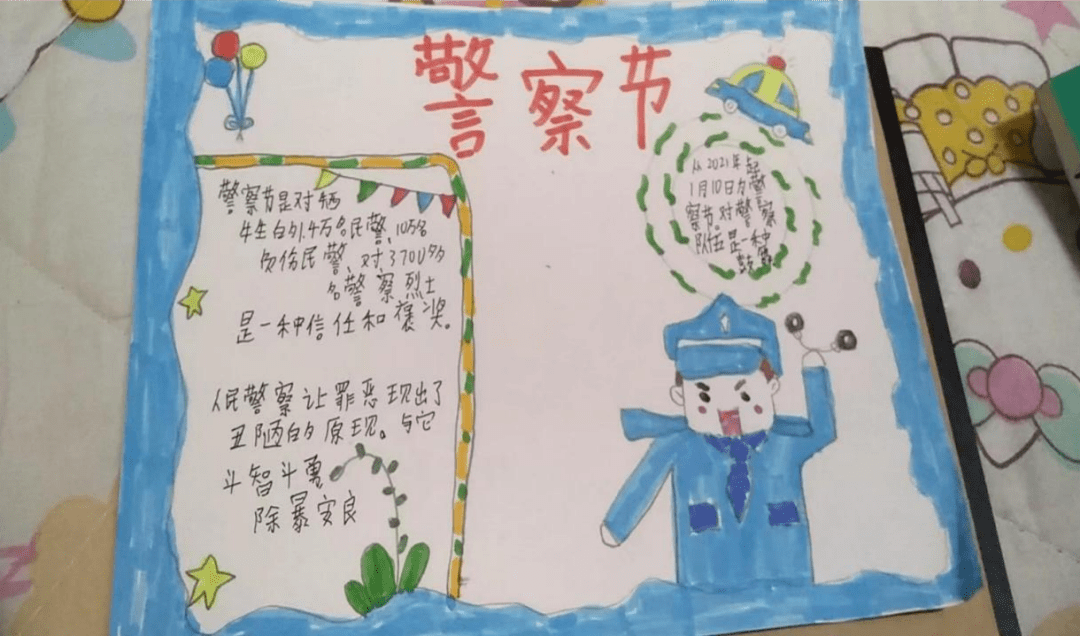 警察节
警察节是对牺
牲的1.4万名民警、105名
负伤民警、对3700多
名警察烈士
是一种信任和褒奖。
人民警察让罪恶现出了
丑陋的原现。与它
斗智斗勇
除暴安良
从2021年起
1月10日为警
察节。对警察
队伍是一种
鼓舞